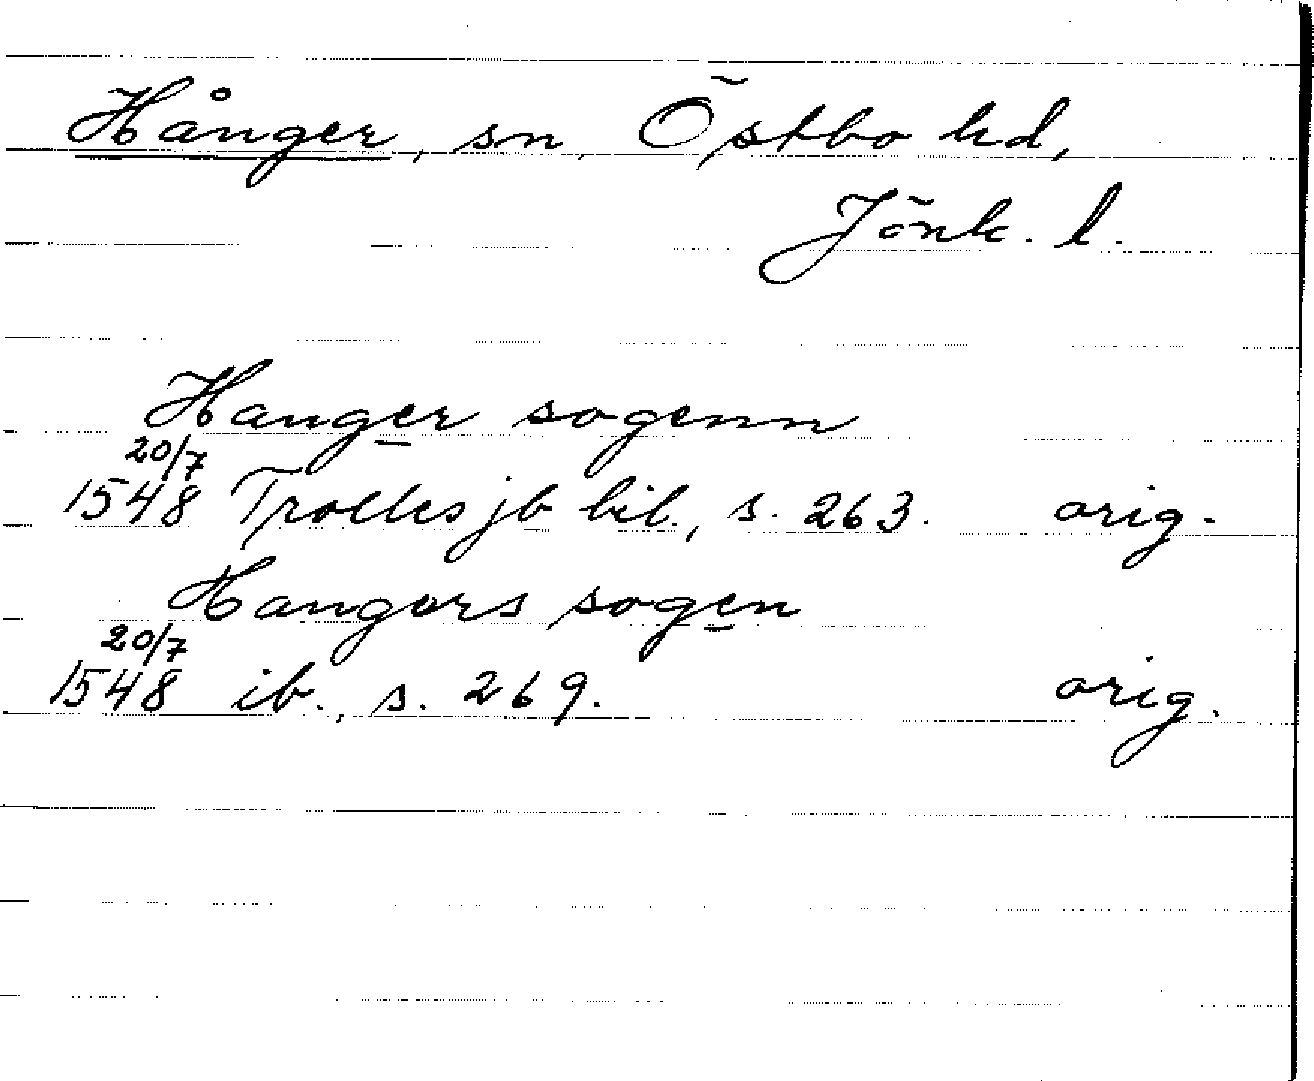 Hånger, sn, Östbo hd,
Jönk. l.
Hanger sogenn
20/7
1548 Trolles jb bil., s. 263. orig.
Hangors sogen
20/7
1548 ib., s. 269. orig.